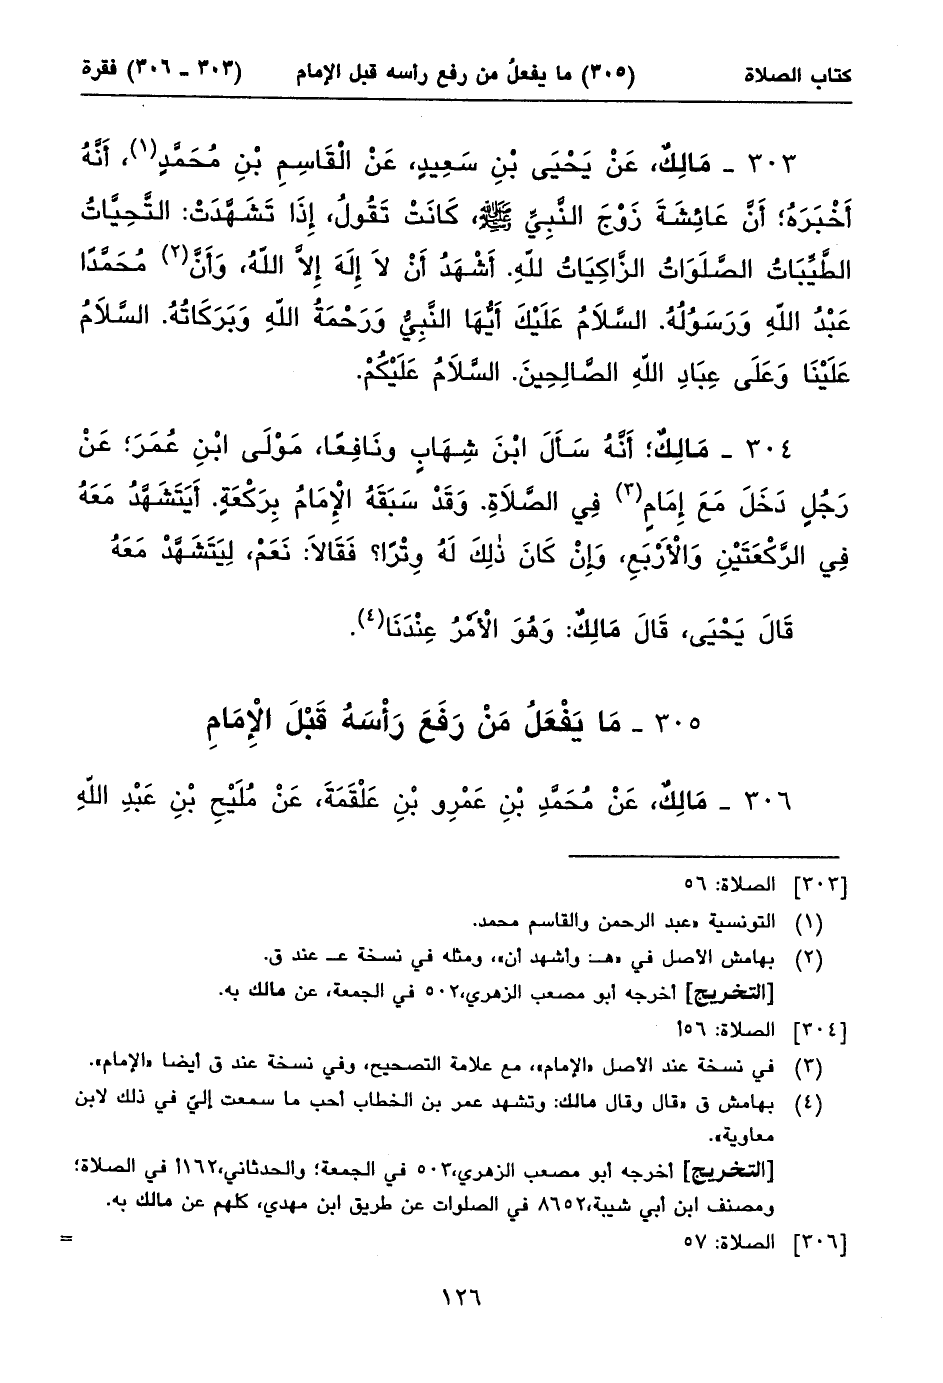 كتاب الصلاة (٣٠٥) ما يفعلُ من رفع رأسه قبل الإمام (٣٠٣ - ٣٠٦) فقرة
٣٠٣ - مَالِكٌ، عَنْ يَحْيَى بْنِ سَعِيدٍ، عَنْ الْقَاسِمِ بْنِ مُحَمَّدٍ(١)، أَنَّهُ
أَخْبَرَهُ؛ أَنَّ عَائِشَةَ زَوْجَ النَّبِيِّ ﷺ، كَانَتْ تَقُولُ، إِذَا تَشَهَّدَتْ: التَّحِيَّاتُ
الطَّيِّبَاتُ الصَّلَوَاتُ الزَّاكِيَاتُ للهِ. أَشْهَدُ أَنْ لاَ إِلَهَ إِلاَّ اللهُ، وَأَنَّ(٢) مُحَمَّدًا
عَبْدُ اللهِ وَرَسُولُهُ. السَّلاَمُ عَلَيْكَ أَيُّهَا النَّبِيُّ وَرَحْمَةُ اللهِ وَبَرَكَاتُهُ. السَّلاَمُ
عَلَيْنَا وَعَلَى عِبَادِ اللهِ الصَّالِحِينَ. السَّلاَمُ عَلَيْكُمْ.
٣٠٤ - مَالِكٌ؛ أَنَّهُ سَأَلَ ابْنَ شِهَابٍ ونَافِعًا، مَوْلَى ابْنِ عُمَرَ؛ عَنْ
رَجُلٍ دَخَلَ مَعَ إِمَامٍ(٣) فِي الصَّلاَةِ. وَقَدْ سَبَقَهُ الْإِمَامُ بِرَكْعَةٍ. أَيَتَشَهَّدُ مَعَهُ
فِي الرَّكْعَتَيْنِ وَالْأَرْبَعِ، وَإِنْ كَانَ ذٰلِكَ لَهُ وِتْرًا؟ فَقَالاَ: نَعَمْ، لِيَتَشَهَّدْ مَعَهُ
قَالَ يَحْيَى، قَالَ مَالِكٌ: وَهُوَ الْأَمْرُ عِنْدَنَا(٤).
٣٠٥ - مَا يَفْعَلُ مَنْ رَفَعَ رَأْسَهُ قَبْلَ الْإِمَامِ
٣٠٦ - مَالِكٌ، عَنْ مُحَمَّدِ بْنِ عَمْرِو بْنِ عَلْقَمَةَ، عَنْ مُلَيْحِ بْنِ عَبْدِ اللهِ
[٣٠٣] الصلاة: ٥٦
(١) التونسية «عبد الرحمن والقاسم محمد.
(٢) بهامش الأصل في «هـ: وأشهد أن»، ومثله في نسخة عـ عند ق.
[التخريج] أخرجه أبو مصعب الزهري،٥٠٢ في الجمعة، عن مالك به.
[٣٠٤] الصلاة: ٥٦أ
(٣) في نسخة عند الأصل «الإمام»، مع علامة التصحيح، وفي نسخة عند ق أيضا «الإمام».
(٤) بهامش ق «قال وقال مالك: وتشهد عمر بن الخطاب أحب ما سمعت إليّ في ذلك لابن
معاوية».
[التخريج] أخرجه أبو مصعب الزهري،٥٠٣ في الجمعة؛ والحدثاني،١٦٢أ في الصلاة؛
ومصنف ابن أبي شيبة،٨٦٥٢ في الصلوات عن طريق ابن مهدي، كلهم عن مالك به.
[٣٠٦] الصلاة: ٥٧ =
١٢٦